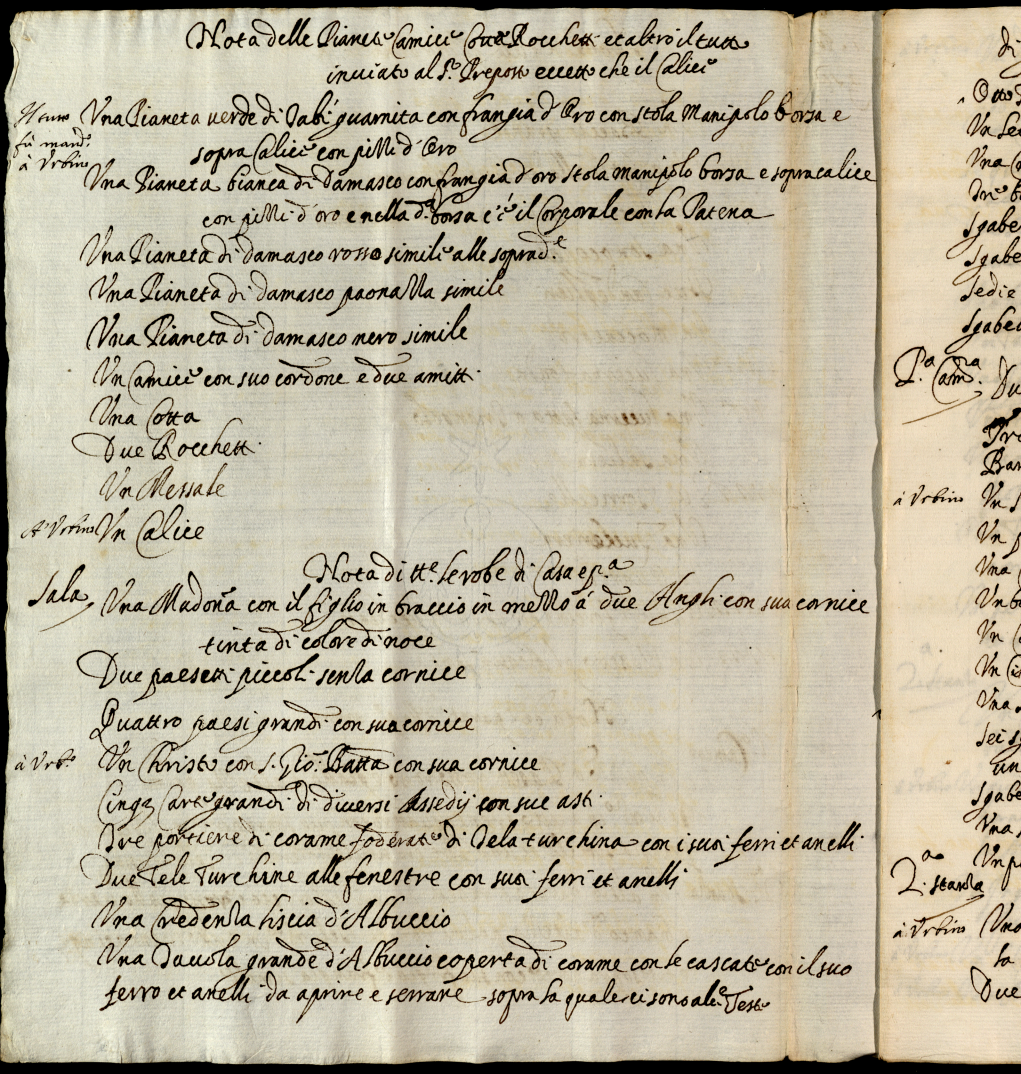 Nota delle Pianete Camici Cotte Rocchetti et altro il tutto
inviato al S.r Preposto eccetto che il Calice
fù mand.
à Urbino
Una Pianeta verde di Tabì guarnita con frangia d'Oro con stola Manipolo borsa e
sopra Calice con pizzi d'Oro
Una Pianeta bianca di Damasco con frangia d'oro stola manipolo borsa e sopracalice
con pizzi d'oro e nella d.a borsa c'è il Corporale con la Patena
Una Pianeta di damasco rosso simile alle soprad.e
Una Pianeta di damasco paonazza simile
Una Pianeta di damasco nero simile
Un Camice con suo cordone e due amitti
Una Cotta
Due Rocchetti
Un Messale
A Urbino Un Calice
Nota di tt.e le robe di Casa e p.a
Sala
Una Madoña con il figlio in braccio in mezzo à due Angli con sua cornice
tinta di colore di noce
Due paesetti piccoli senza cornice
Quattro paesi grandi con sua cornice
à Urb.o Un Christo con S. Gio: Batta con sua cornice
Cinq3 Carte grandi di diversi Assedij con sue asti
Tre portiere di corame foderate di Tela turchina con i suoi ferri et anelli
Due Tele Turchine alle fenestre con suoi ferri et anelli
Una Credenza liscia d'Albuccio
Una Tavola grande d'Albuccio coperta di corame con le cascate con il suo
ferro et anelli da aprire e serrare sopra la quale ci sono alc.e Teste
P.a Cam.ra
à Urbino
2.a stanza
à Urbino